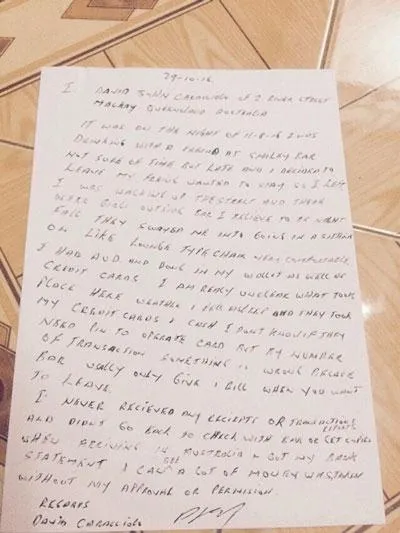 29-10-16
I DAVID JOHN CARACCIOLO OF 2 RIVER STREET
MACKAY QUEENSLAND AUSTRALIA
IT WAS ON THE NIGHT OF 11-8-16 I WAS
DRINKING WITH A FRIEND AT SMILEY BAR
NOT SURE OF TIME BUT LATE AND I DECIDED TO
LEAVE MY FRIEND WANTED TO STAY SO I LEFT
I WAS WALKING UP THE STREET AND THERE
WERE GIRLS OUTSIDE BAR I BELIEVE TO BE NIGHT
FALL THEY SWAYED ME INTO GOING IN & SITTING
ON LIKE LOUNGE TYPE CHAIR VERY COMFORTABLE
I HAD AUD AND DONG IN MY WALLET AS WELL AS
CREDIT CARDS I AM REALY UNCLEAR WHAT TOOK
PLACE HERE WEATHER I FELL ASLEEP AND THEY TOOK
MY CREDIT CARDS & CASH I DONT KNOW IF THEY
NEED PIN TO OPERATE CARD BUT BY NUMBER
OF TRANSACTION SOMETHING IS WRONG BECAUSE
BAR USALLY ONLY GIVE 1 BILL WHEN YOU WANT
TO LEAVE
I NEVER RECIEVED ANY RECIEPTS OR TRANSACTIONS
AND DIDNT GO BACK TO CHECK WITH BAR OR GET COPIES
WHEN ARRIVING IN AUSTRALIA & GOT MY BANK
STATEMENT I CAN SEE A LOT OF MONEY WAS TAKEN
WITHOUT MY APPROVAL OR PERMISION
REGARDS
DAVID CARACCIOLO